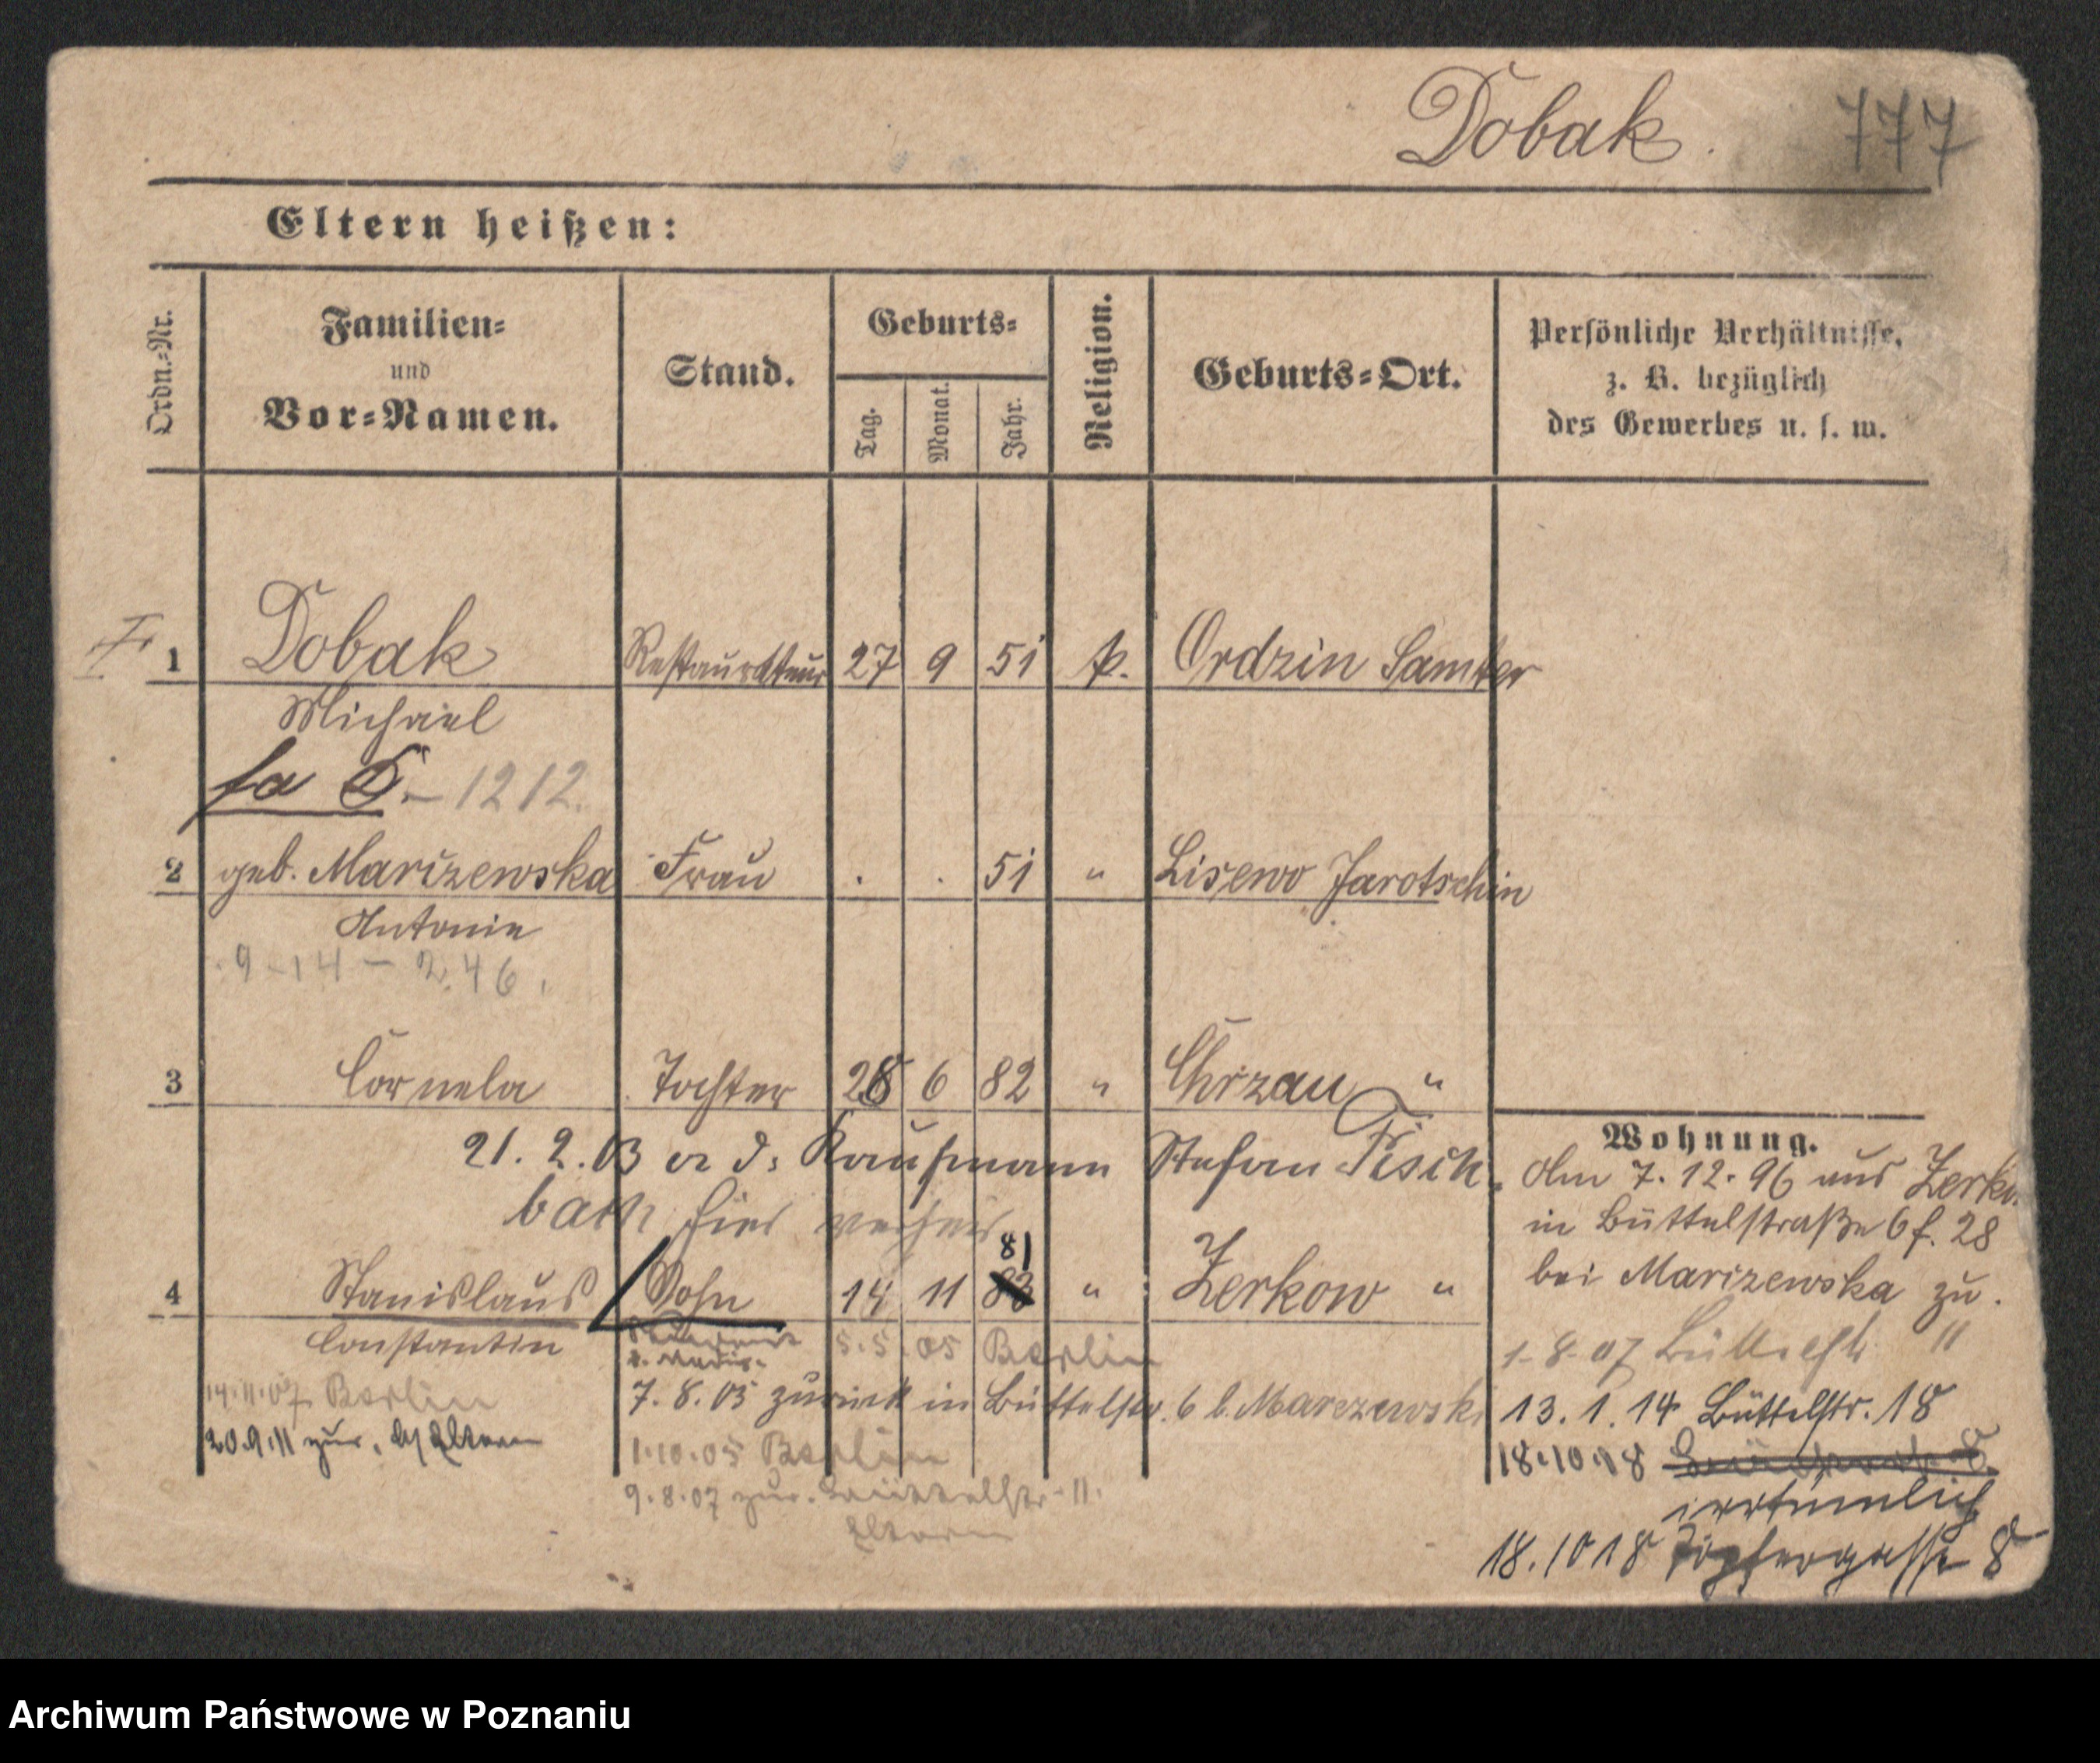 Dobak. 777
Eltern heißen:
Ordn.-Nr.
Familien-
und
Vor-Namen.
Stand.
Geburts-
Tag.
Monat.
Jahr.
Religion.
Geburts-Ort.
Persönliche Verhältnisse,
z. B. bezüglich
des Gewerbes u. s. w.
1 Dobak Restaurateur 27 9 51 k. Ordzin Samter
Michael
1212.
2 geb. Marizewska Frau . . 51 " Lisewo Jarotschin
Antonie
9-14-246.
3 Cornela Tochter 28 6 82 " Chrzan "
21.2.03 Kaufmann Stefan Fisch
bach hier verheir
4 Stanislaus Sohn 14 11 81 " Zerkow "
Constantin
5.5.05 Berlin
7.8.05 zurück in Büttelstr. 6 b. Marczewski
14.11.07 Berlin
20.9.11 zur. Eltern
1.10.05 Berlin
9.8.07 zur. Büttelstr. 11.
Eltern
Wohnung.
Am 7.12.96 aus Zerkow
in Büttelstraße 6 f. 28
bei Marizewska zu.
1.8.07 Büttelstr. 11
13.1.14 Büttelstr. 18
18.10.18
irrtümlich
18.10 18 Töpfergasse 8
Archiwum Państwowe w Poznaniu